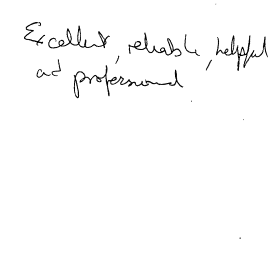 Excellent, reliable, helpful
and professional